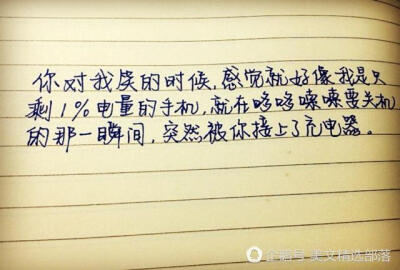 你对我笑的时候,感觉就好像我是只
剩1%电量的手机,就在哆哆嗦嗦要关机
的那一瞬间,突然被你接上了充电器。
企鹅号 美文精选部落